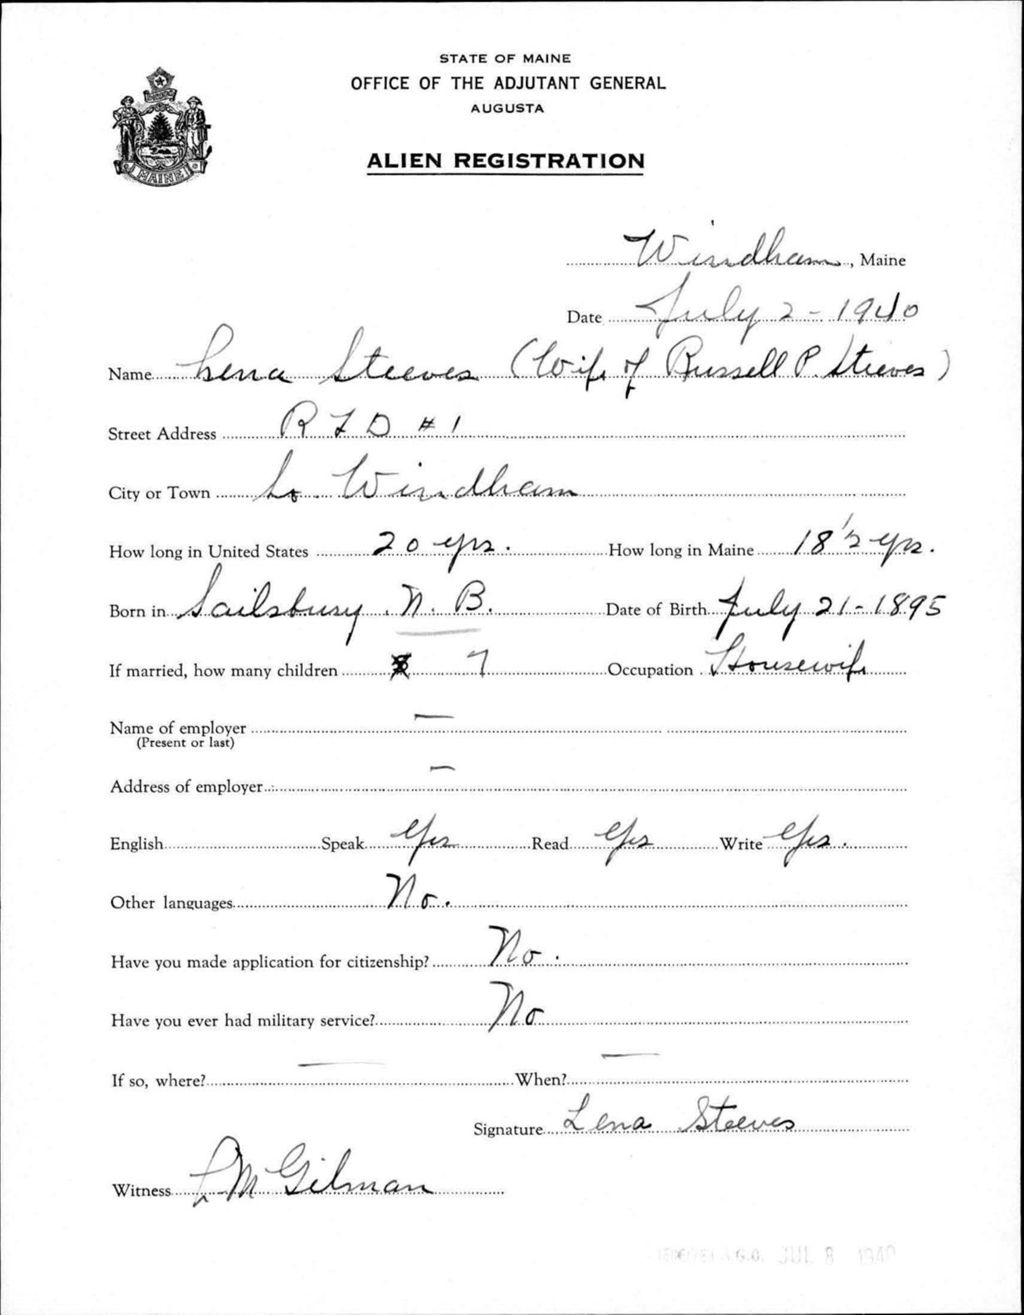 STATE OF MAINE
OFFICE OF THE ADJUTANT GENERAL
AUGUSTA
MAINE
ALIEN REGISTRATION
Windham, Maine
Date July 2 - 1940
Name Lena Steeves (Wife of Russell P. Steeves)
Street Address R F D #1
City or Town So. Windham
How long in United States 20 yrs. How long in Maine 18 1/2 yrs.
Born in Sailsbury. N. B. Date of Birth July 21-1895
If married, how many children 7 Occupation Housewife
Name of employer —
(Present or last)
Address of employer —
English Speak Yes Read Yes Write Yes.
Other languages No.
Have you made application for citizenship? No.
Have you ever had military service? No
If so, where? — When? —
Signature Lena Steeves
Witness L M Gilman
A.G.O. JUL 8 1940